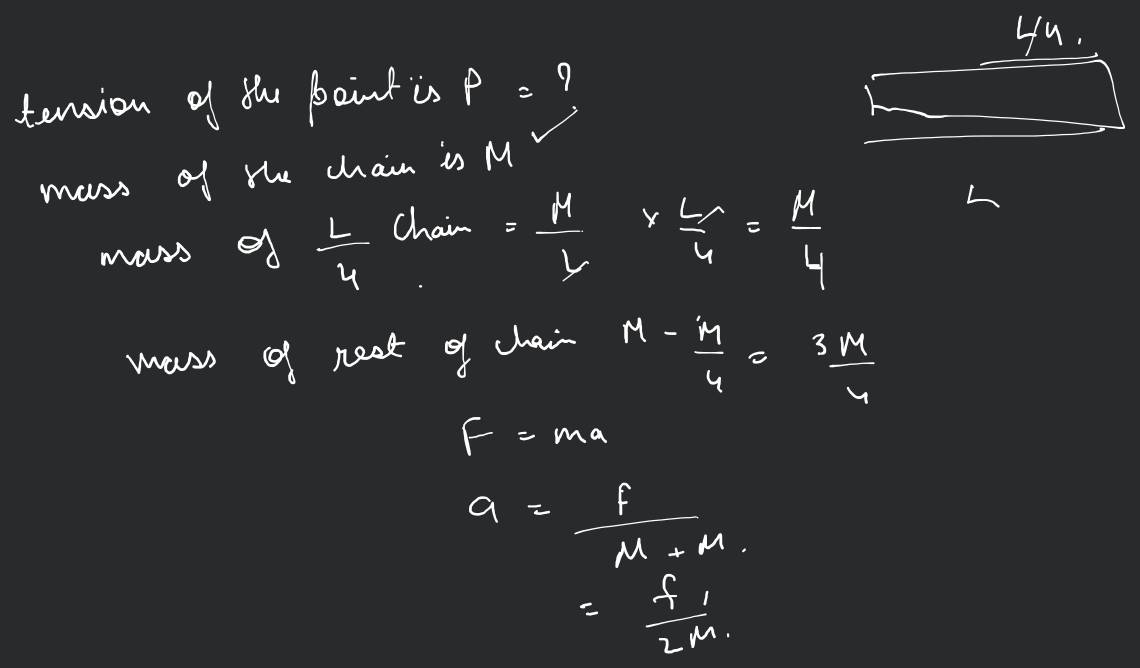 L/4.
tension of the point is P = ?
mass of the chain is M ✓
L
mass of L/4 chain = M/L × L/4 = M/4
mass of rest of chain M - M/4 = 3M/4
F = ma
a = f/M + M.
= f/2M.